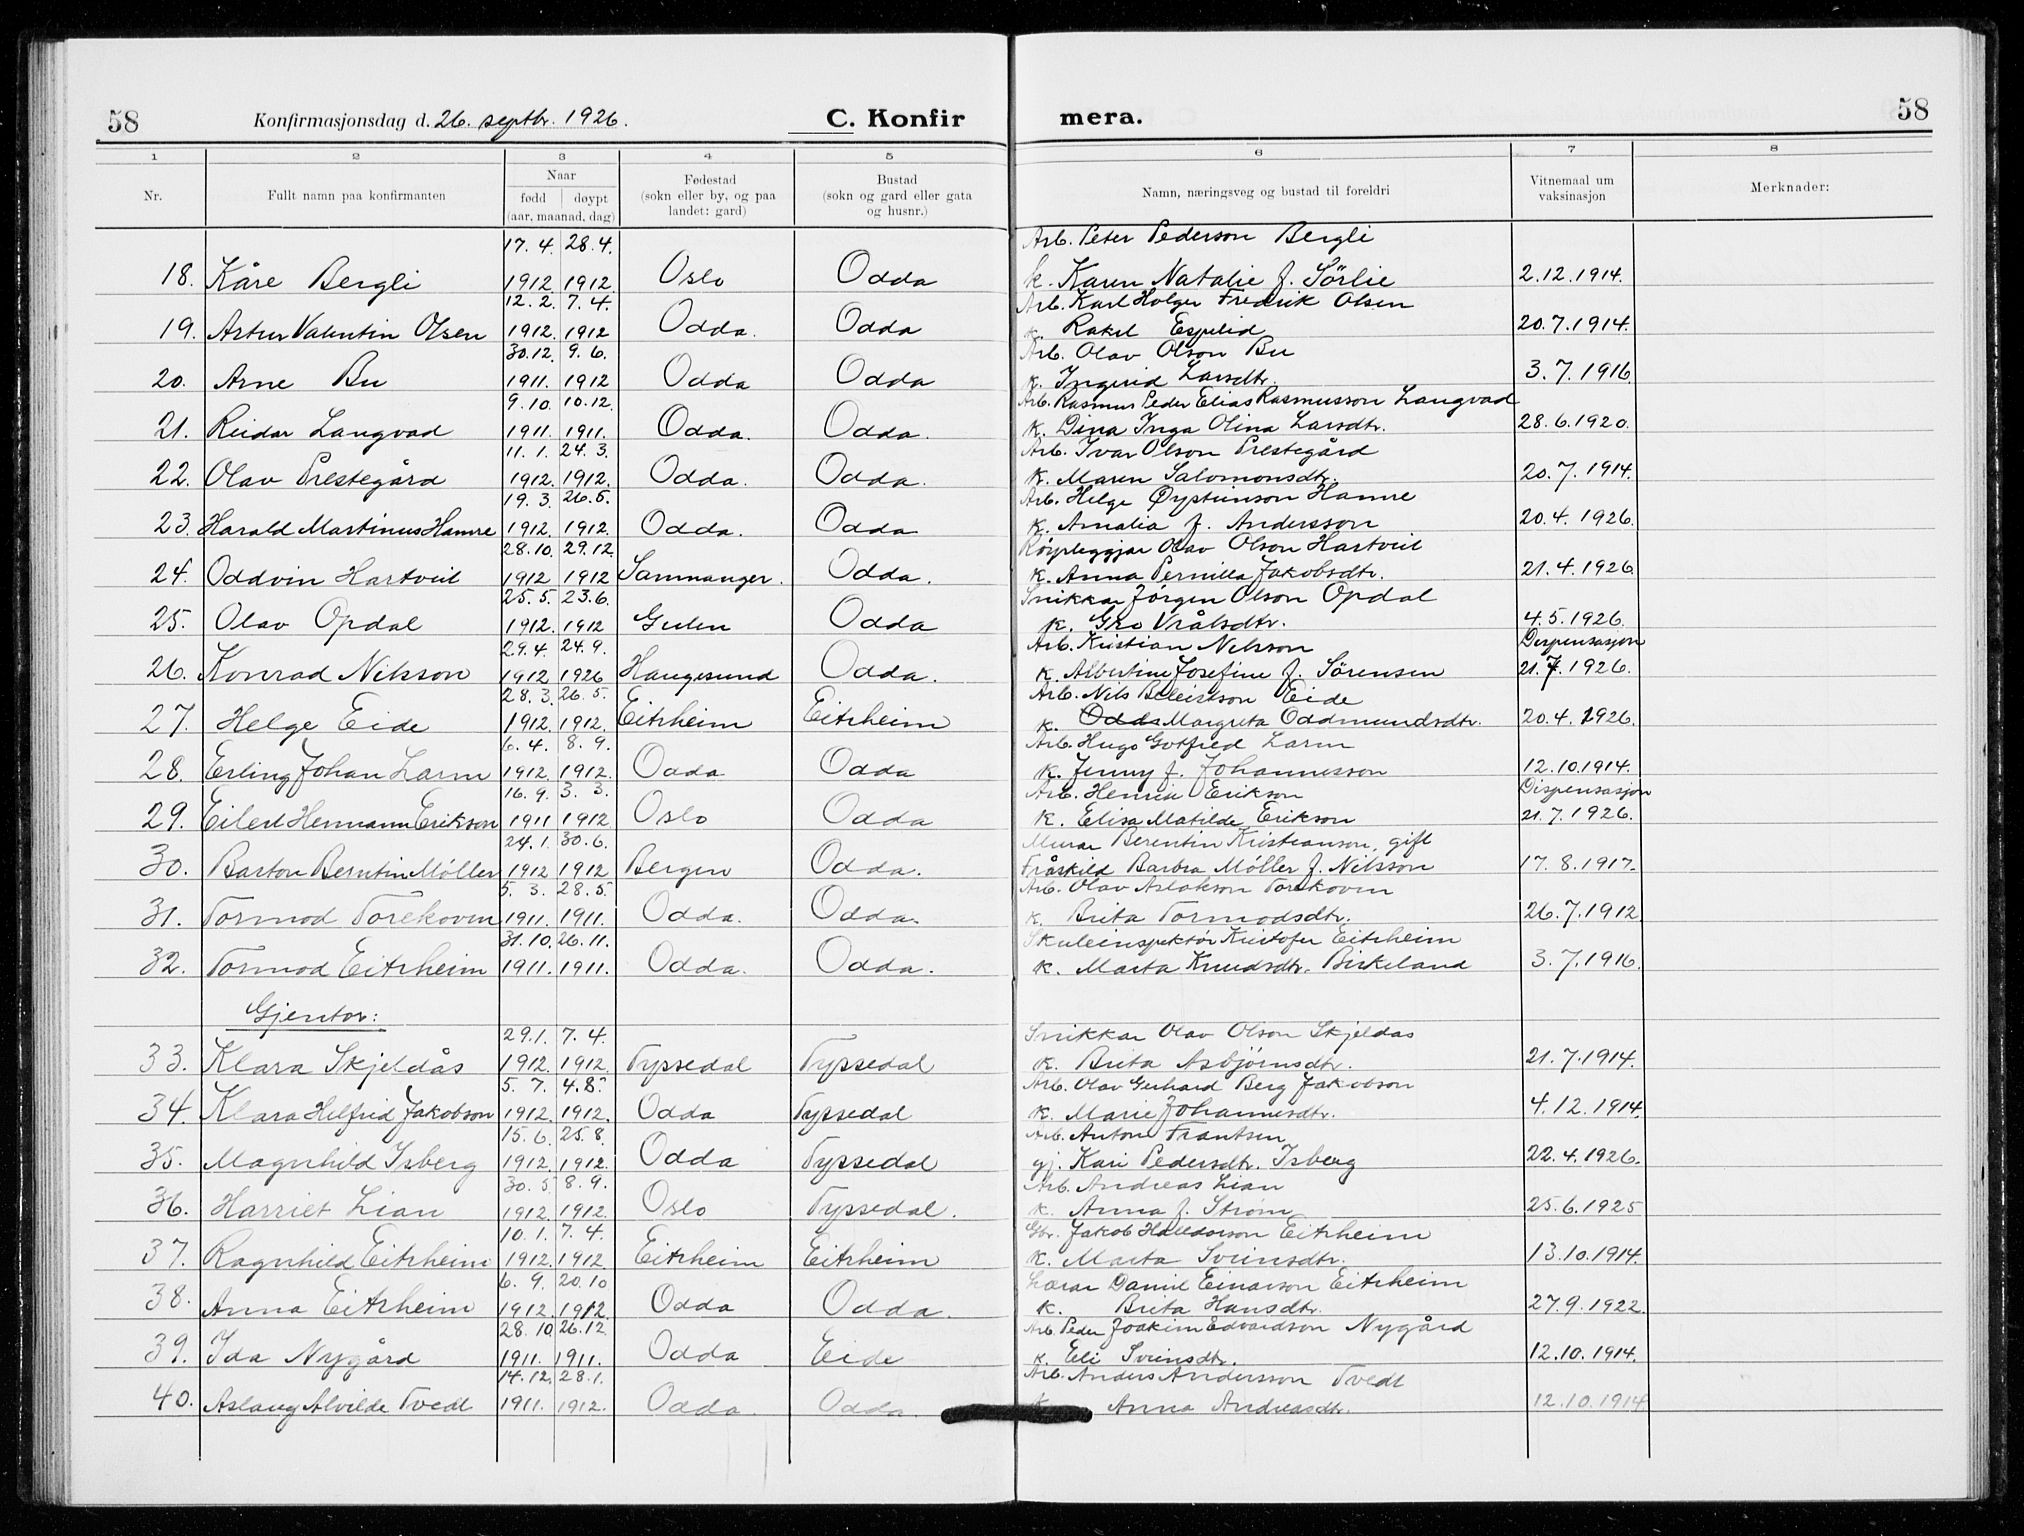 58 Konfirmasjonsdag d. 26. septbr. 1926. C. Konfir mera. 58
1 2 3 4 5 6 7 8
Nr. Fullt namn paa konfirmanten Naar fødd døypt (aar, maanad, dag) Fødestad (sokn eller by, og paa landet: gard) Bustad (sokn og gard eller gata og husnr.) Namn, næringsveg og bustad til foreldri Vitnemaal um vaksinasjon Merknader:
17. 4. 28. 4. Arb. Peter Pederson Bergli
18. Kåre Bergli 1912 1912. Oslo Odda k. Karen Natalie f. Sörlie 2.12.1914.
12. 2. 7. 4. Arb. Karl Holger Fredrik Olsen
19. Artur Valentin Olsen 1912. 1912 Odda. Odda k. Rakel Espelid 20.7.1914.
30.12. 9. 6. Arb. Olav Olson Bu
20. Arne Bu 1911. 1912 Odda Odda k. Ingerid Larsdtr. 3.7.1916.
9. 10. 10.12. Arb. Rasmus Peder Elias Rasmusson Langvad
21. Reidar Langvad 1911. 1911. Odda. Odda. k. Dina Inga Olina Larsdtr. 28.6.1920.
11. 1. 24. 3. Arb. Ivar Olson Prestegård
22. Olav Prestegård 1912. 1912. Odda. Odda. k. Maren Salomonsdtr. 20.7.1914.
19. 3. 26. 5. Arb. Helge Øysteinson Hamre
23. Harald Martinus Hamre 1912. 1912. Odda. Odda k. Amalia f. Andersson 20.4.1926.
28.10. 29.12. Røyrleggjar Olav Olson Hartveit
24. Oddvin Hartveit 1912 1912 Sammanger. Odda. k. Anna Pernilla Jakobsdtr. 21.4.1926.
25. 5. 23. 6. Snikkar Jörgen Olson Opdal
25. Olav Opdal 1912. 1912 Gulen Odda k. Gro Vrålsdtr. 4.5.1926.
29. 4. 24. 9. Arb. Kristian Nilsson Dispensasjon
26. Konrad Nilsson 1912 1926 Haugesund Odda. k. Albertine Josefine f. Sörensen 21.7.1926.
28. 3. 26. 5. Arb. Nils Eide
27. Helge Eide 1912. 1912. Eitrheim Eitrheim k. Odda Margreta Oddmundsdtr. 20.4.1926.
6. 4. 8. 9. Arb. Hugo Gotfred Larm
28. Erling Johan Larm 1912. 1912. Odda Odda k. Jenny f. Johannesson 12.10.1914.
16. 9. 3. 3. Arb. Henrik Erikson Dispensasjon
29. Eilert Hermann Erikson 1911 1912 Oslo Odda k. Elisa Matilde Erikson 21.7.1926.
24. 1. 30. 6. Murar Berentin Kristianson, gift
30. Barton Berntin Møller 1912 1912 Bergen Odda. Fråskild Barbra Møller f. Nilsson 17.8.1917.
5. 3. 28. 5. Arb. Olav Aslakson Torekoven
31. Tormod Torekoven 1911. 1911. Odda. Odda. k. Brita Tormodsdtr. 26.7.1912
31. 10. 26. 11. Skuleinspektør Kristofer Eitrheim
32. Tormod Eitrheim 1911. 1911. Odda. Odda. k. Marta Knudsdtr. Birkeland 3.7.1916.
Gjentor:
29. 1. 7. 4. Snikkar Olav Olson Skjeldås
33. Klara Skjeldås 1912. 1912. Tyssedal Tyssedal k. Brita Asbjørnsdtr. 21.7.1914.
5. 7. 4. 8. Arb. Olav Gerhard Berg Jakobson
34. Klara Helfrid Jakobson 1912. 1912. Odda Tyssedal k. Marie Johannesdtr. 4.12.1914.
15. 6. 25. 8. Arb. Anton Frantsen
35. Magnhild Isberg 1912. 1912. Odda Tyssedal gj. Kari Pedersdtr. Isberg 22.4.1926.
30. 5. 8. 9. Arb. Andreas Lian
36. Harriet Lian 1912. 1912. Oslo Tyssedal. k. Anna f. Strøm 25.6.1925
10. 1. 7. 4. Gbr. Jakob Halldorson Eitrheim
37. Ragnhild Eitrheim 1912. 1912 Eitrheim Eitrheim k. Marta Sveinsdtr. 13.10.1914.
6. 9. 20. 10 Lærar Daniel Einarson Eitrheim
38. Anna Eitrheim 1912. 1912 Odda Odda. k. Brita Hansdtr. 27.9.1922.
28. 10. 26. 12. Arb. Peder Joakim Edvardson Nygård
39. Ida Nygård 1911. 1911. Odda Eide k. Eli Sveinsdtr. 12.10.1914.
14. 12. 28. 1. Arb. Anders Andersson Tvedt
40. Aslaug Alvilde Tvedt 1911. 1912. Odda. Odda. k. Anna Andreasdtr. 12.10.1914